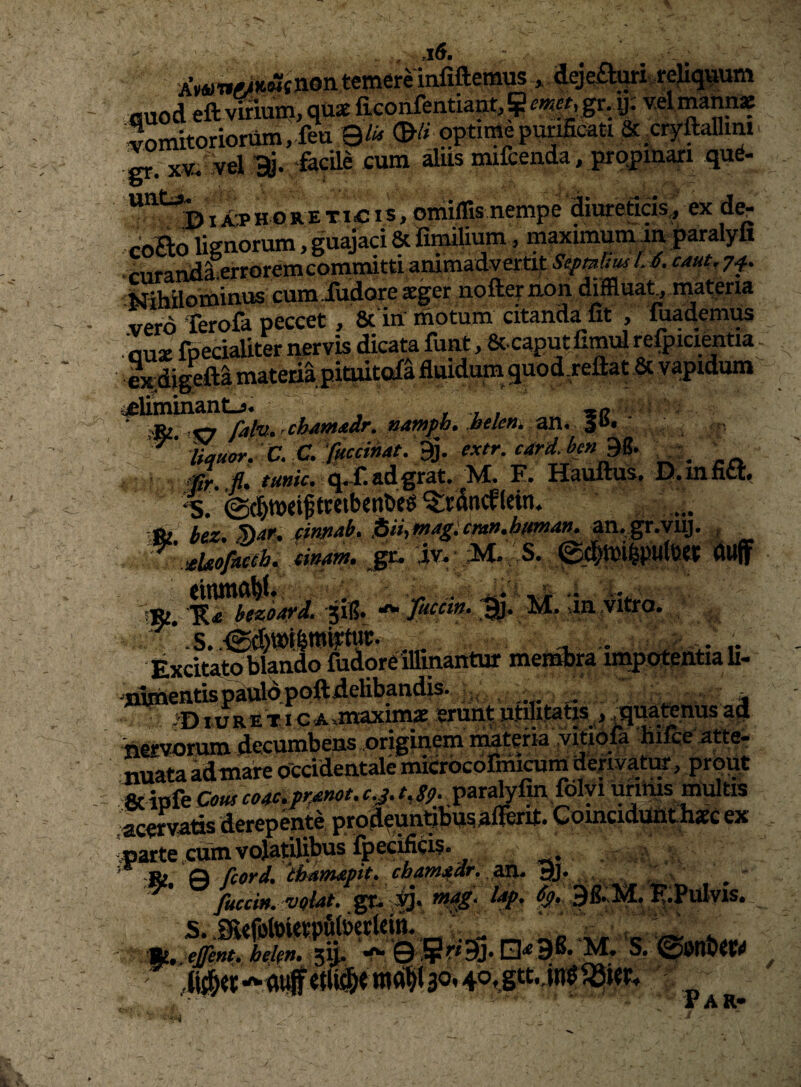 .16.
non temere insistemus, dejecturi reliquum
quod est virium, quæ si consentiant, emet, gr. ij. vel mannæ
vomitoriorum, seu optime purificati & crystallini
gr. xv. vel ℈j. facile cum aliis miscenda, propinari que-
unt.
DIAPHORETICIS, omissis nempe diureticis, ex de-
cocto lignorum, guajaci & similium, maximum in paralysi
curanda errorem committi animadvertit Septalius l. 6. caut. 74.
Nihilominus cum sudore æger noster non diffluat, materia
vero serosa peccet, & in motum citanda sit, suademus
quæ specialiter nervis dicata sunt, & caput simul respicientia
ex digesta materia pituitosa fluidum quod restat & vapidum
eliminant.
℞. ▽ salv. chamædr. nymph. helen. an. ℥ß.
liquor. C. C. succinat. ℈j. extr. card. ben ℈ß.
sir. fl. tunic. q. s. ad grat. M. F. Haustus. D. in fict.
S. Schweißtreibendes Träncklein.
℞. bez. ♄ar. cinnab. mag. cran. human. an. gr. viij.
elæosacch. cinam. gr. iv. M. S. Schwitzpulver auff
einmahl.
℞. bezoard. ʒiß. succin. ℈j. M. in vitro.
S. Schwitzmixtur.
Excitato blando sudore illinantur membra impotentia li-
nimentis paulò post delibandis.
DIURETICA maximæ erunt utilitatis, quatenus ad
nervorum decumbens originem materia vitiosa hisce atte-
nuata ad mare occidentale microcosmicum derivatur, prout
& ipse Cous coac. prænot. c. 3. t. 89. paralysin solvi urinis multis
acervatis derepente prodeuntibus asserit. Coincidunt hæc ex
parte cum volatilibus specificis.
℞. scord. chamæpit. chamædr. an. ℈j.
succin. volat. gr. vj. mag. lap. ℈ß. M. F. Pulvis.
S. Resolvierpülverlein.
℞. essent. helen. ʒij. ℈j. ℈ß. M. S. Sonder-
licher auff etliche mahl 30. 40. gtt. ins Bier.
PAR-